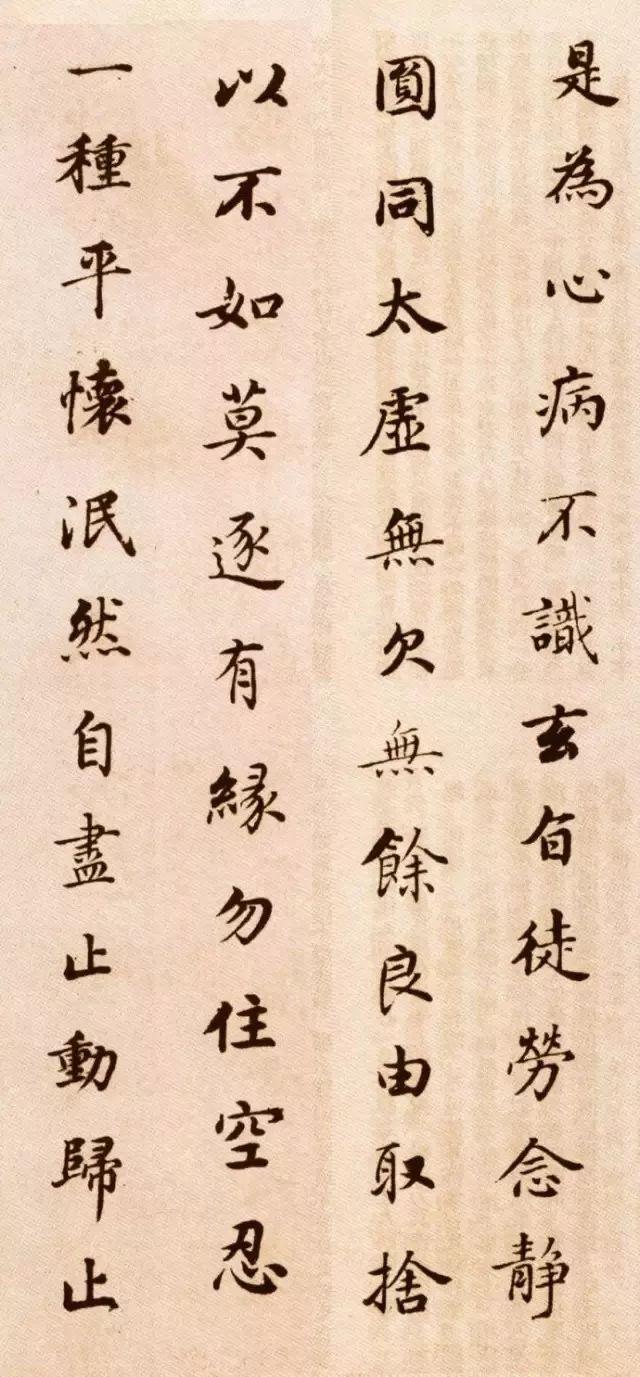 是為心病不識玄旨徒勞念靜
圓同太虛無欠無餘良由取捨
以不如莫逐有緣勿住空忍
一種平懷泯然自盡止動歸止